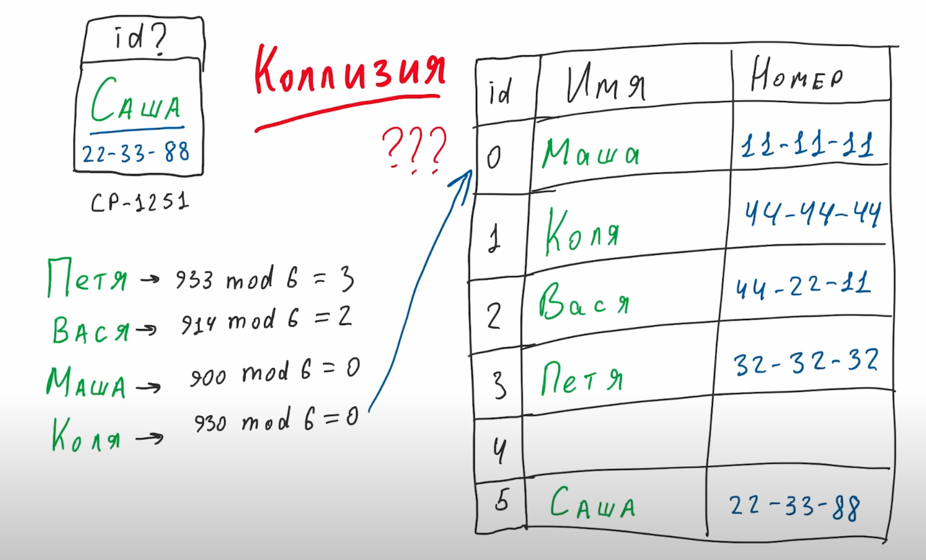 id?
Саша
22-33-88
CP-1251
Коллизия
???
Петя → 933 mod 6 = 3
Вася → 914 mod 6 = 2
Маша → 900 mod 6 = 0
Коля → 930 mod 6 = 0
id Имя Номер
0 Маша 11-11-11
1 Коля 44-44-44
2 Вася 44-22-11
3 Петя 32-32-32
4
5 Саша 22-33-88